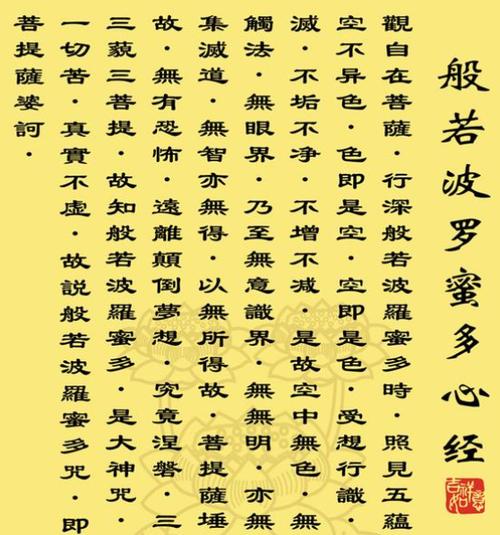 般若波罗蜜多心经
吉祥如意
觀自在菩薩・行深般若波羅蜜多時・照見五蘊
空不异色・色即是空・空即是色・受想行識・
滅・不垢不净・不增不减・是故空中無色・無
觸法・無眼界・乃至無意識界・無無明・亦無
集滅道・無智亦無得・以無所得故・菩提薩埵
故・無有恐怖・遠離顛倒夢想・究竟涅磐・三
三藐三菩提・故知般若波羅蜜多・是大神咒・
一切苦・真實不虛・故説般若波羅蜜多咒・即
菩提薩婆訶・